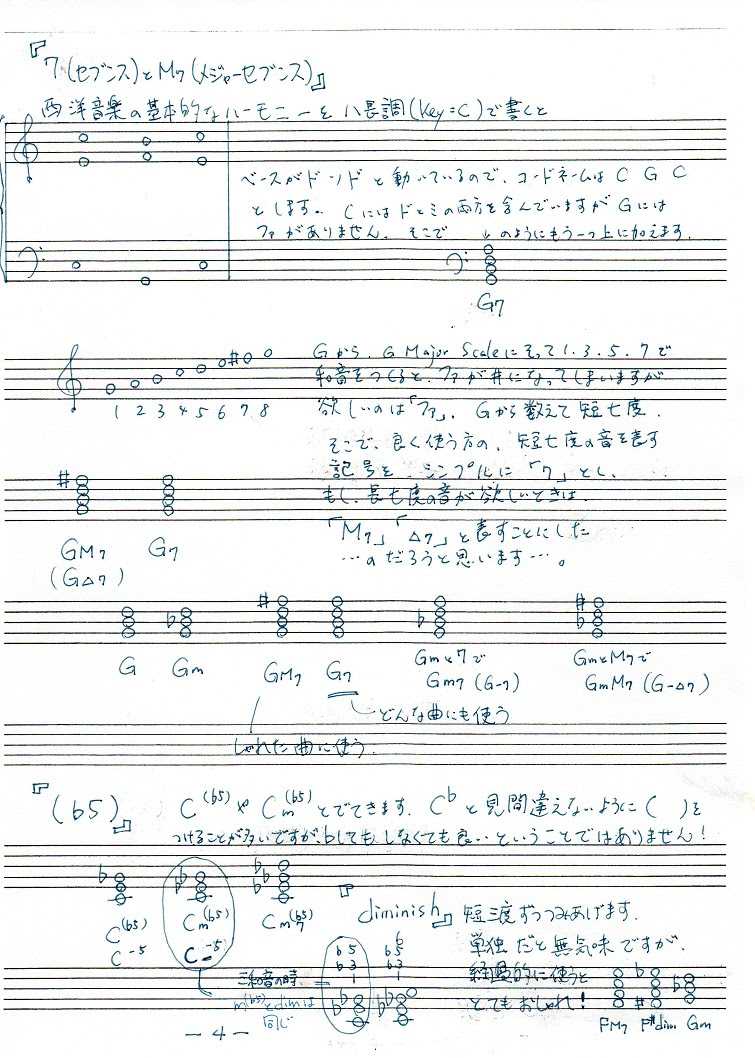 『7(セブンス)とM7(メジャーセブンス)』
西洋音楽の基本的なハーモニーをハ長調(Key=C)で書くと
ベースがド ソ ドと動いているので、コードネームは C G C
とします。 Cにはドとミの両方を含んでいますが Gには
ファがありません。そこで ↓のようにもう一つ上に加えます。
G7
Gから、G Major Scaleにそって1.3.5.7で
和音をつくると、ファが#になってしまいますが
1 2 3 4 5 6 7 8
欲しいのは「ファ」、Gから数えて短七度。
そこで、良く使う方の、短七度の音を表す
記号を、シンプルに「7」とし、
もし、長七度の音が欲しいときは、
GM7 G7
(G△7)
「M7」「△7」と表すことにした
…のだろうと思います…。
G Gm GM7 G7 Gmと7で GmとM7で
Gm7 (G-7) GmM7 (G-△7)
どんな曲にも使う
しゃれた曲に使う
『(♭5)』
C(♭5)や Cm(♭5)とでてきます。C♭と見間違えないように( )を
つけることが多いですが、♭しても、しなくても良いということではありません!
C(♭5) Cm(♭5) Cm7(♭5)
C-5 C-(-5)
『diminish』 短三度ずつつみあげます。
単独だと無気味ですが、
経過的に使うと
とてもおしゃれ!
三和音の時
m(♭5)とdimは
同じ
♭5 ♭5
♭3 ♭3
1 1
FM7 F#dim Gm
— 4 —